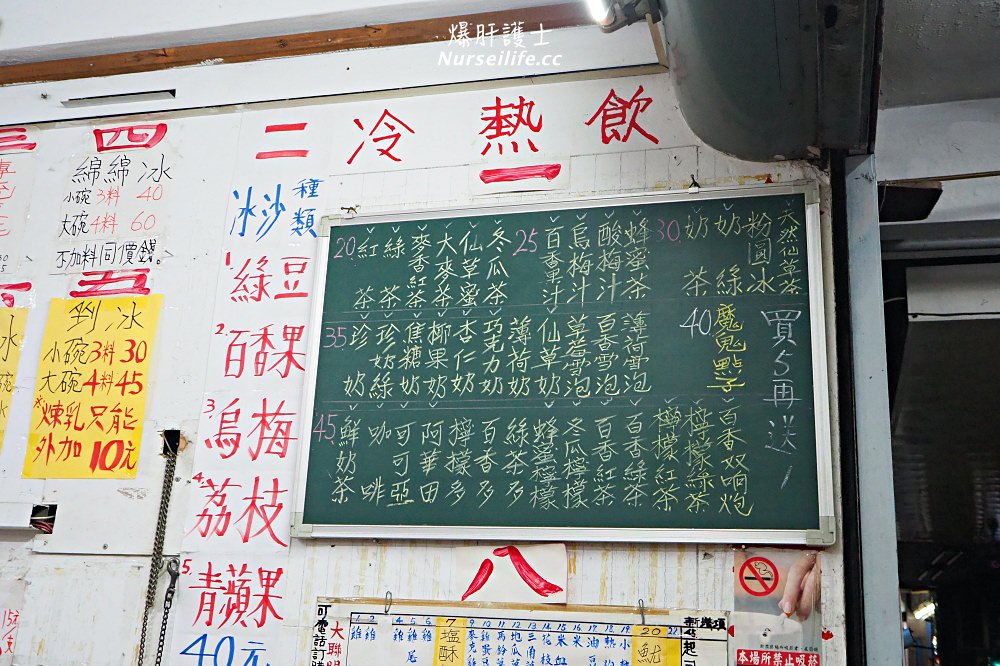 爆肝護士
Nurseilife.cc
冷熱飲
一
20
紅茶
綠茶
麥香紅茶
大麥茶
仙草蜜
冬瓜茶
25
百香果汁
烏梅汁
酸梅汁
蜂蜜茶
30
奶茶
奶綠
粉圓冰
天然仙草茶
35
珍奶
珍奶綠
焦糖奶
椰果奶
杏仁奶
巧克力奶
薄荷奶
仙草奶
草莓雪泡
百香雪泡
薄荷雪泡
40
魔鬼點子
買5再送1
45
鮮奶茶
咖啡
可可亞
阿華田
檸檬多
百香多
綠茶多
蜂蜜檸檬
冬瓜檸檬
百香紅茶
百香綠茶
檸檬紅茶
檸檬綠茶
百香奴响炮
二
冰沙種類
1.綠豆
2.百香果
3.烏梅
4.荔枝
5.青蘋果
40元
三
四
綿綿冰
小碗3料 40
大碗4料 60
不加料同價錢。
五
剉冰
小碗3料30
大碗4料45
※煉乳只能
外加10元
八
可電話訂
1 2 4 5 6 7 8 9 10 11 12 13 14 15 16 17 18 19 20 22
塩酥
魷
本場所禁止吸菸